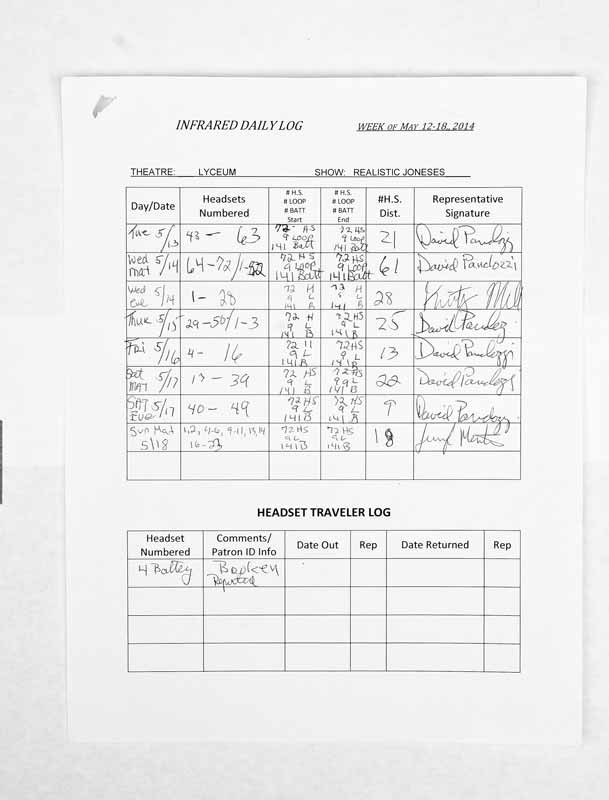 INFRARED DAILY LOG WEEK OF MAY 12-18,, 2014
THEATRE: LYCEUM SHOW: REALISTIC JONESES
Day/Date Headsets Numbered # H.S. # LOOP # BATT Start # H.S. # LOOP # BATT End #H.S. Dist. Representative Signature
Tue 5/13 43 - 63 72 HS 9 LOOP 141 Batt 72 HS 9 LOOP 141 Batt 21 David Pandozzi
Wed Mat 5/14 64-72/1-52 72 HS 9 LOOP 141 Batt 72 HS 9 LOOP 141 Batt 61 David Pandozzi
Wed Eve 5/14 1- 28 72 H 9 L 141 B 72 H 9 L 141 B 28
Thur 5/15 29-50/1-3 72 H 9 L 141 B 72 HS 9 L 141 B 25 David Pandozzi
Fri 5/16 4- 16 72 H 9 L 141 B 72 HS 9 L 141 B 13 David Pandozzi
Sat MAT 5/17 - 39 72 HS 9 L 141 B 72 HS 9 L 141 B 22 David Pandozzi
SAT Eve 5/17 40 - 49 72 HS 9 L 141 B 72 HS 9 L 141 B 9 David Pandozzi
Sun Mat 5/18 1,2, 4-6, 9-11, 13,14 16-23 72 HS 9 L 141 B 72 HS 9 L 141 B 18
HEADSET TRAVELER LOG
Headset Numbered Comments/ Patron ID Info Date Out Rep Date Returned Rep
4 Battey Broken Reported